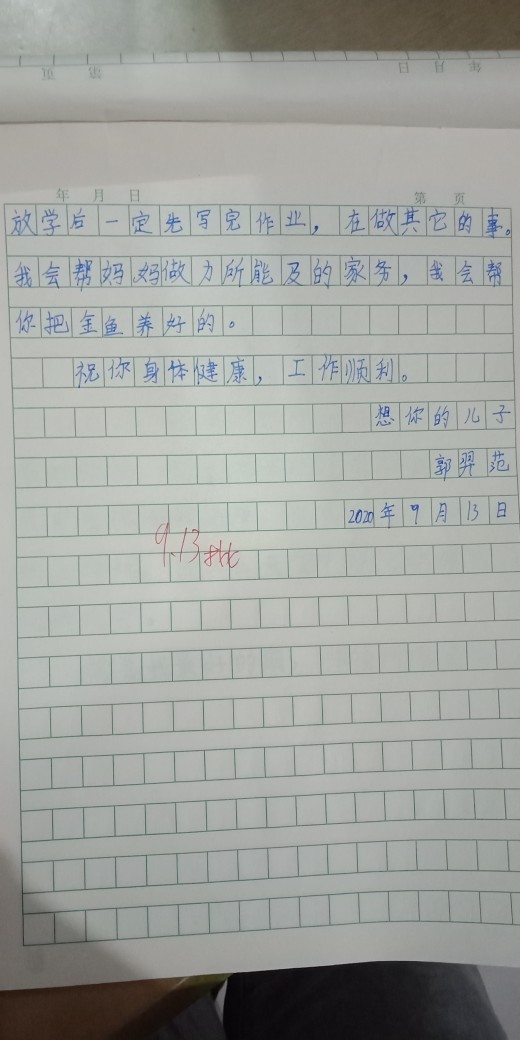 年 月 日 第 页
放学后一定先写完作业，在做其它的事。
我会帮妈妈做力所能及的家务，我会帮
你把金鱼养好的。
祝你身体健康，工作顺利。
想你的儿子
郭羿范
2020年9月13日
9.13批